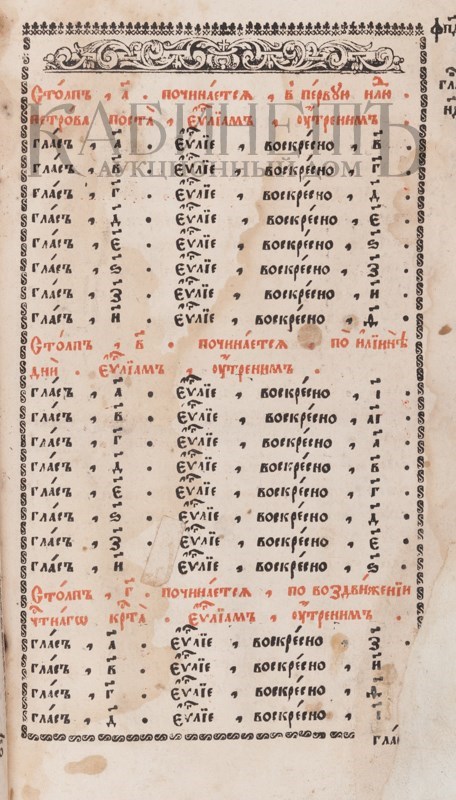 Сто́лпъ , а҃ · починаетсѧ , в̾ первую нл҃ю
петрова поста̀ , єѵⷢ҇лїамъ , оутренимъ ·
гла́съ , а҃ · єѵⷢ҇лїе , воскре́сно , в҃ ·
гла́съ , в҃ · єѵⷢ҇лїе , воскре́сно , г҃ ·
гла́съ , г҃ · єѵⷢ҇лїе , воскре́сно , д҃ ·
гла́съ , д҃ · єѵⷢ҇лїе , воскре́сно , є҃ ·
гла́съ , є҃ · єѵⷢ҇лїе , воскре́сно , ѕ҃ ·
гла́съ , ѕ҃ · єѵⷢ҇лїе , воскре́сно , з҃ ·
гла́съ , з҃ · єѵⷢ҇лїе , воскре́сно , и҃ ·
гла́съ , и҃ · єѵⷢ҇лїе , воскре́сно , д҃ ·
Сто́лпъ , в҃ · починаетсѧ , по илїинѣ
днѝ · єѵⷢ҇лїамъ , оутренимъ ·
гла́съ , а҃ · єѵⷢ҇лїе , воскре́сно , і҃ ·
гла́съ , в҃ · єѵⷢ҇лїе , воскре́сно , аі҃ ·
гла́съ , г҃ · єѵⷢ҇лїе , воскре́сно , а҃ ·
гла́съ , д҃ · єѵⷢ҇лїе , воскре́сно , в҃ ·
гла́съ , є҃ · єѵⷢ҇лїе , воскре́сно , г҃ ·
гла́съ , ѕ҃ · єѵⷢ҇лїе , воскре́сно , д҃ ·
гла́съ , з҃ · єѵⷢ҇лїе , воскре́сно , є҃ ·
гла́съ , и҃ · єѵⷢ҇лїе , воскре́сно , ѕ҃ ·
Сто́лпъ , г҃ · починаетсѧ , по воздвижении
чⷭ҇тнагѡ крⷭ҇та̀ , єѵⷢ҇лїамъ , оутренимъ ·
гла́съ , а҃ · єѵⷢ҇лїе , воскре́сно , з҃ ·
гла́съ , в҃ · єѵⷢ҇лїе , воскре́сно , и҃
гла́съ , г҃ · єѵⷢ҇лїе , воскре́сно ,
гла́съ , д҃ · єѵⷢ҇лїе , воскре́сно , і҃
КАБИНЕТЪ
АУКЦИОННЫЙ ДОМ